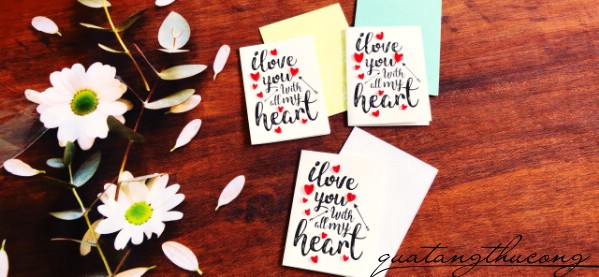 i love
you
with
all my
heart
i love
you
with
all my
heart
i love
you
with
all my
heart
quatangthucong